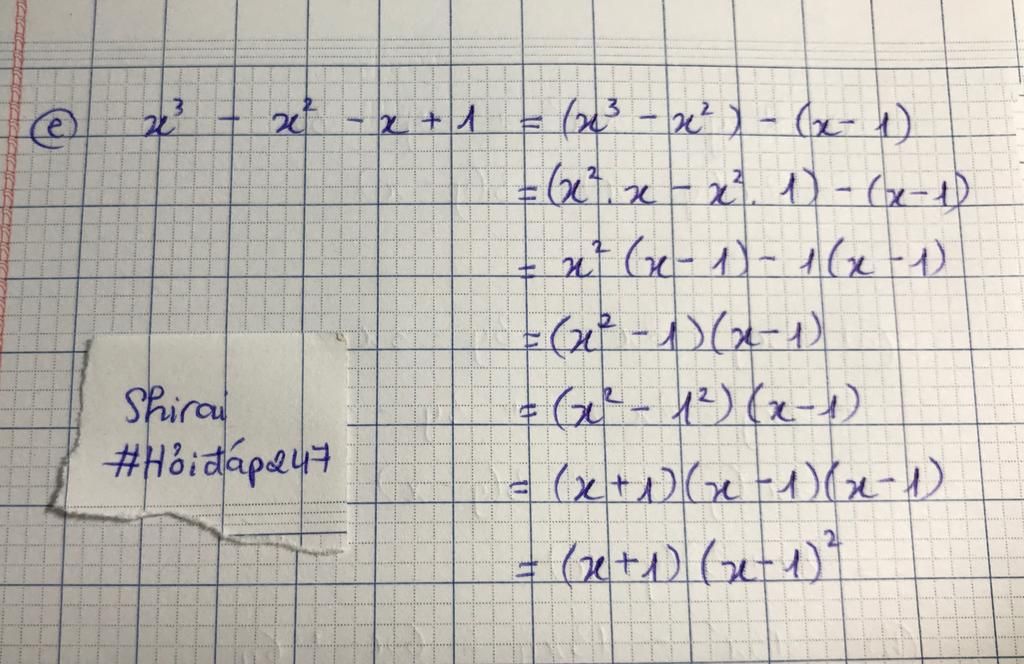 e x³ - x² - x + 1 = (x³ - x²) - (x - 1)
= (x² . x - x² . 1) - (x - 1)
= x² (x - 1) - 1 (x - 1)
= (x² - 1) (x - 1)
= (x² - 1²) (x - 1)
= (x + 1) (x - 1) (x - 1)
= (x + 1) (x - 1)²
Shirai
#Hỏiđáp247